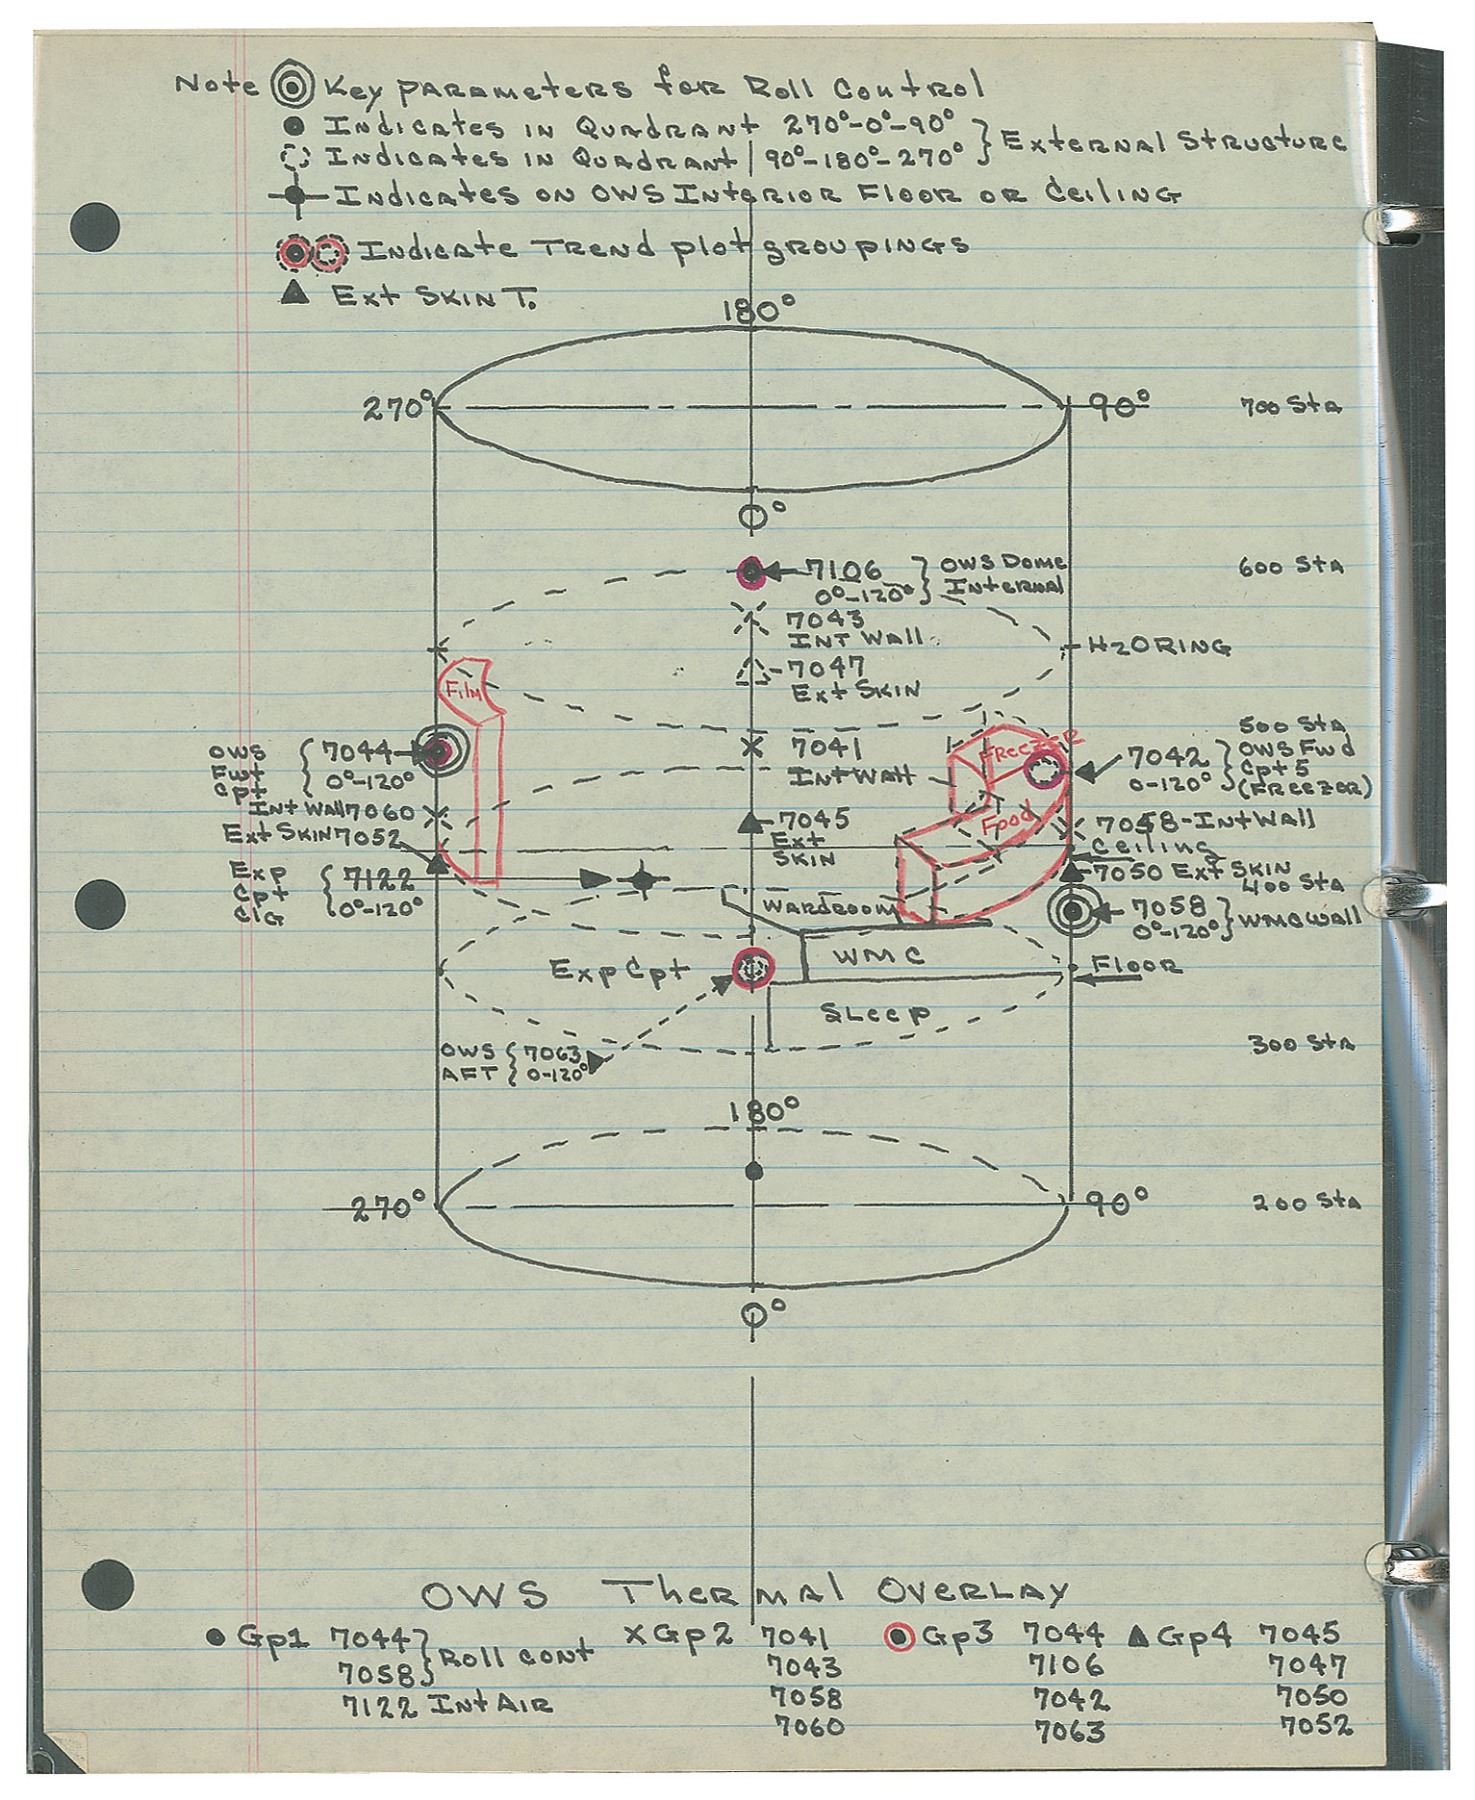 Note Key Parameters for Roll Control
Indicates in Quadrant 270°-0°-90° } External Structure
Indicates in Quadrant 90°-180°-270° }
Indicates on OWS Interior Floor or Ceiling
Indicate Trend plot groupings
Ext Skin T.
180°
270° 90° 700 Sta
0°
7106 } OWS Dome 600 Sta
0°-120° } Internal
7043
Int Wall
H2O Ring
7047
Ext Skin
Film
500 Sta
OWS { 7044
Fwt { 0°-120°
Cpt
7041
Int Wall
Freezer
7042 } OWS Fwd
0-120° } Cpt 5
(Freezer)
Int Wall 7060
Ext Skin 7052
7045
Ext
Skin
Food
7058-Int Wall
Ceiling
7050 Ext Skin
400 Sta
Exp { 7122
Cpt { 0°-120°
ClG
Wardroom
7058 } WMC Wall
0°-120° }
Exp Cpt
WMC
Floor
Sleep
OWS { 7063
AFT { 0-120°
300 Sta
180°
270° 90° 200 Sta
0°
OWS Thermal Overlay
Gp1 7044 } Roll cont
7058 }
7122 Int Air
X Gp2 7041
7043
7058
7060
Gp3 7044
7106
7042
7063
Gp4 7045
7047
7050
7052